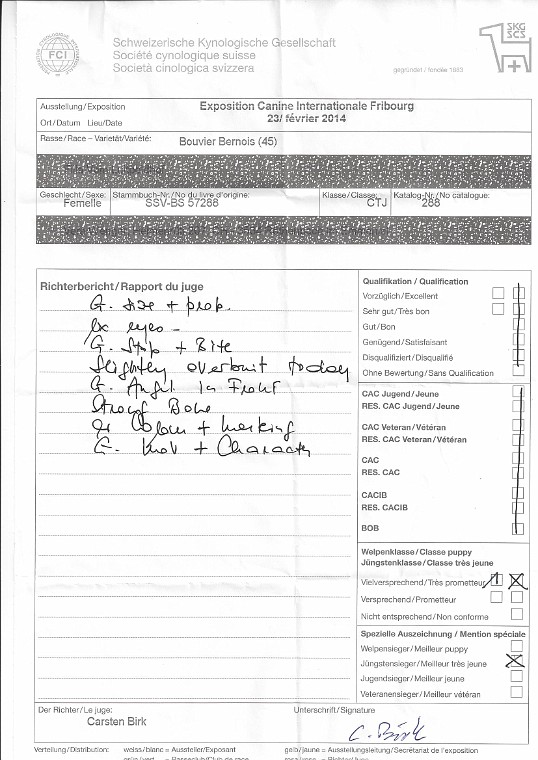 FCI
Schweizerische Kynologische Gesellschaft
Société cynologique suisse
Società cinologica svizzera
SKG
SCS
gegründet / fondée 1883
Ausstellung/Exposition
Exposition Canine Internationale Fribourg
Ort/Datum Lieu/Date
23/ février 2014
Rasse/Race – Varietät/Variété:
Bouvier Bernois (45)
Geschlecht/Sexe: Stammbuch-Nr./No du livre d'origine: Klasse/Classe: Katalog-Nr./No catalogue:
Femelle SSV-BS 57288 CTJ 288
Richterbericht/Rapport du juge
G. size + prop.
Ex eyes –
G. Stop + Bite
Slightly overbuilt today
G. Angul in Front
Strong Bone
Colour + marking
+ Character
Qualifikation / Qualification
Vorzüglich/Excellent
Sehr gut/Très bon
Gut/Bon
Genügend/Satisfaisant
Disqualifiziert/Disqualifié
Ohne Bewertung/Sans Qualification
CAC Jugend/Jeune
RES. CAC Jugend/Jeune
CAC Veteran/Vétéran
RES. CAC Veteran/Vétéran
CAC
RES. CAC
CACIB
RES. CACIB
BOB
Welpenklasse/Classe puppy
Jüngstenklasse/Classe très jeune
Vielversprechend/Très prometteur 1
Versprechend/Prometteur
Nicht entsprechend/Non conforme
Spezielle Auszeichnung / Mention spéciale
Welpensieger/Meilleur puppy
Jüngstensieger/Meilleur très jeune
Jugendsieger/Meilleur jeune
Veteranensieger/Meilleur vétéran
Der Richter/Le juge:
Carsten Birk
Unterschrift/Signature
C. Birk
Verteilung/Distribution: weiss/blanc = Aussteller/Exposant gelb/jaune = Ausstellungsleitung/Secrétariat de l'exposition